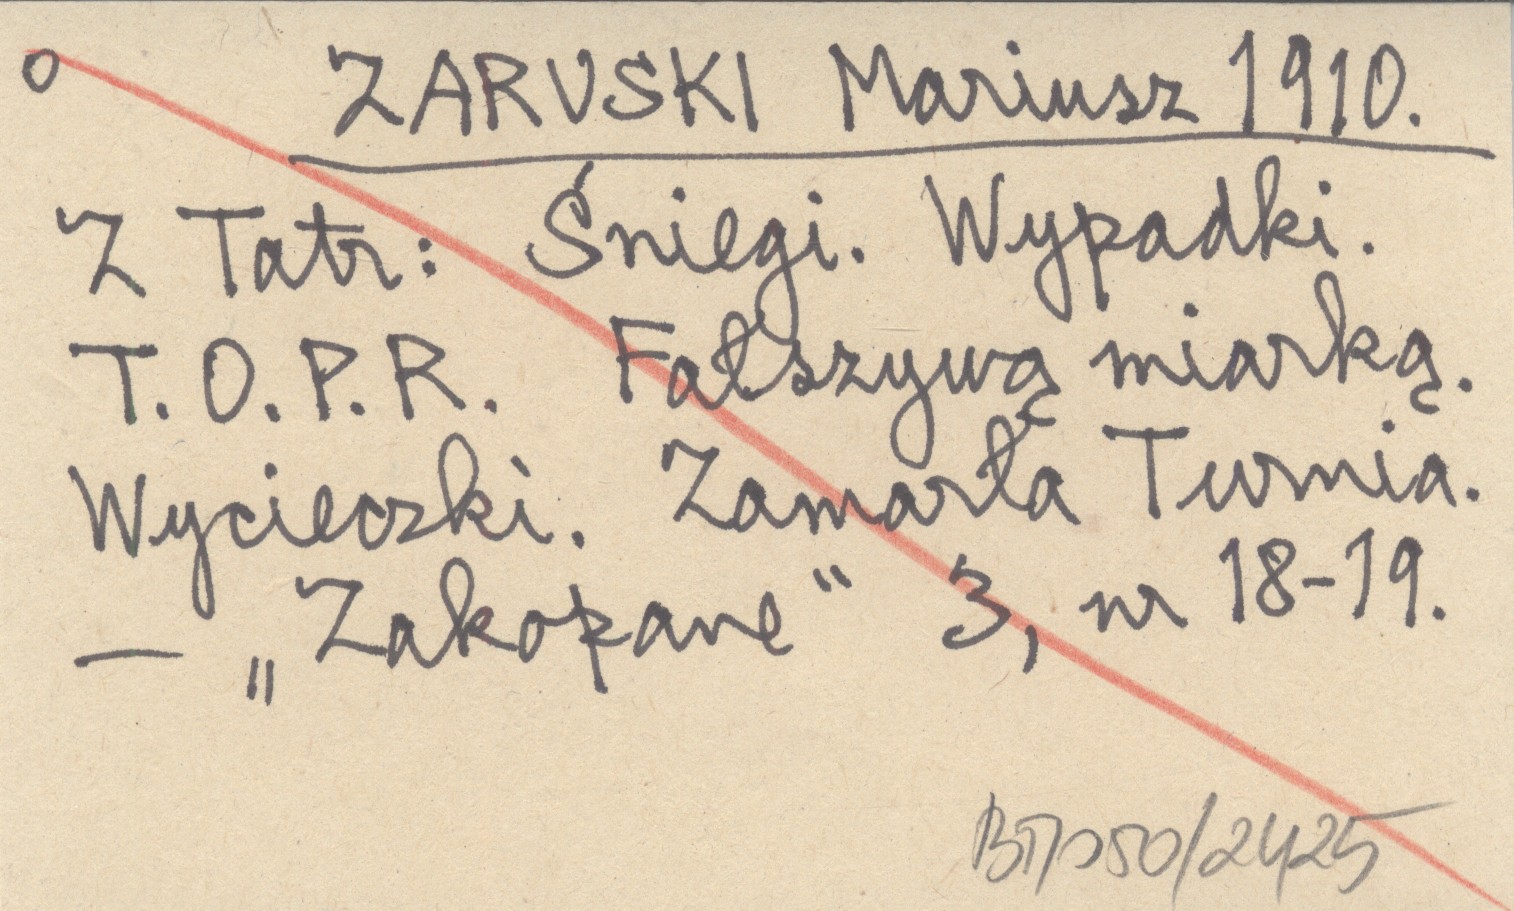 o ZARUSKI Mariusz 1910.
Z Tatr: Śniegi. Wypadki.
T.O.P.R. Fałszywą miarką.
Wycieczki. Zamarła Turnia.
— „Zakopane" 3, nr 18-19.
/2425